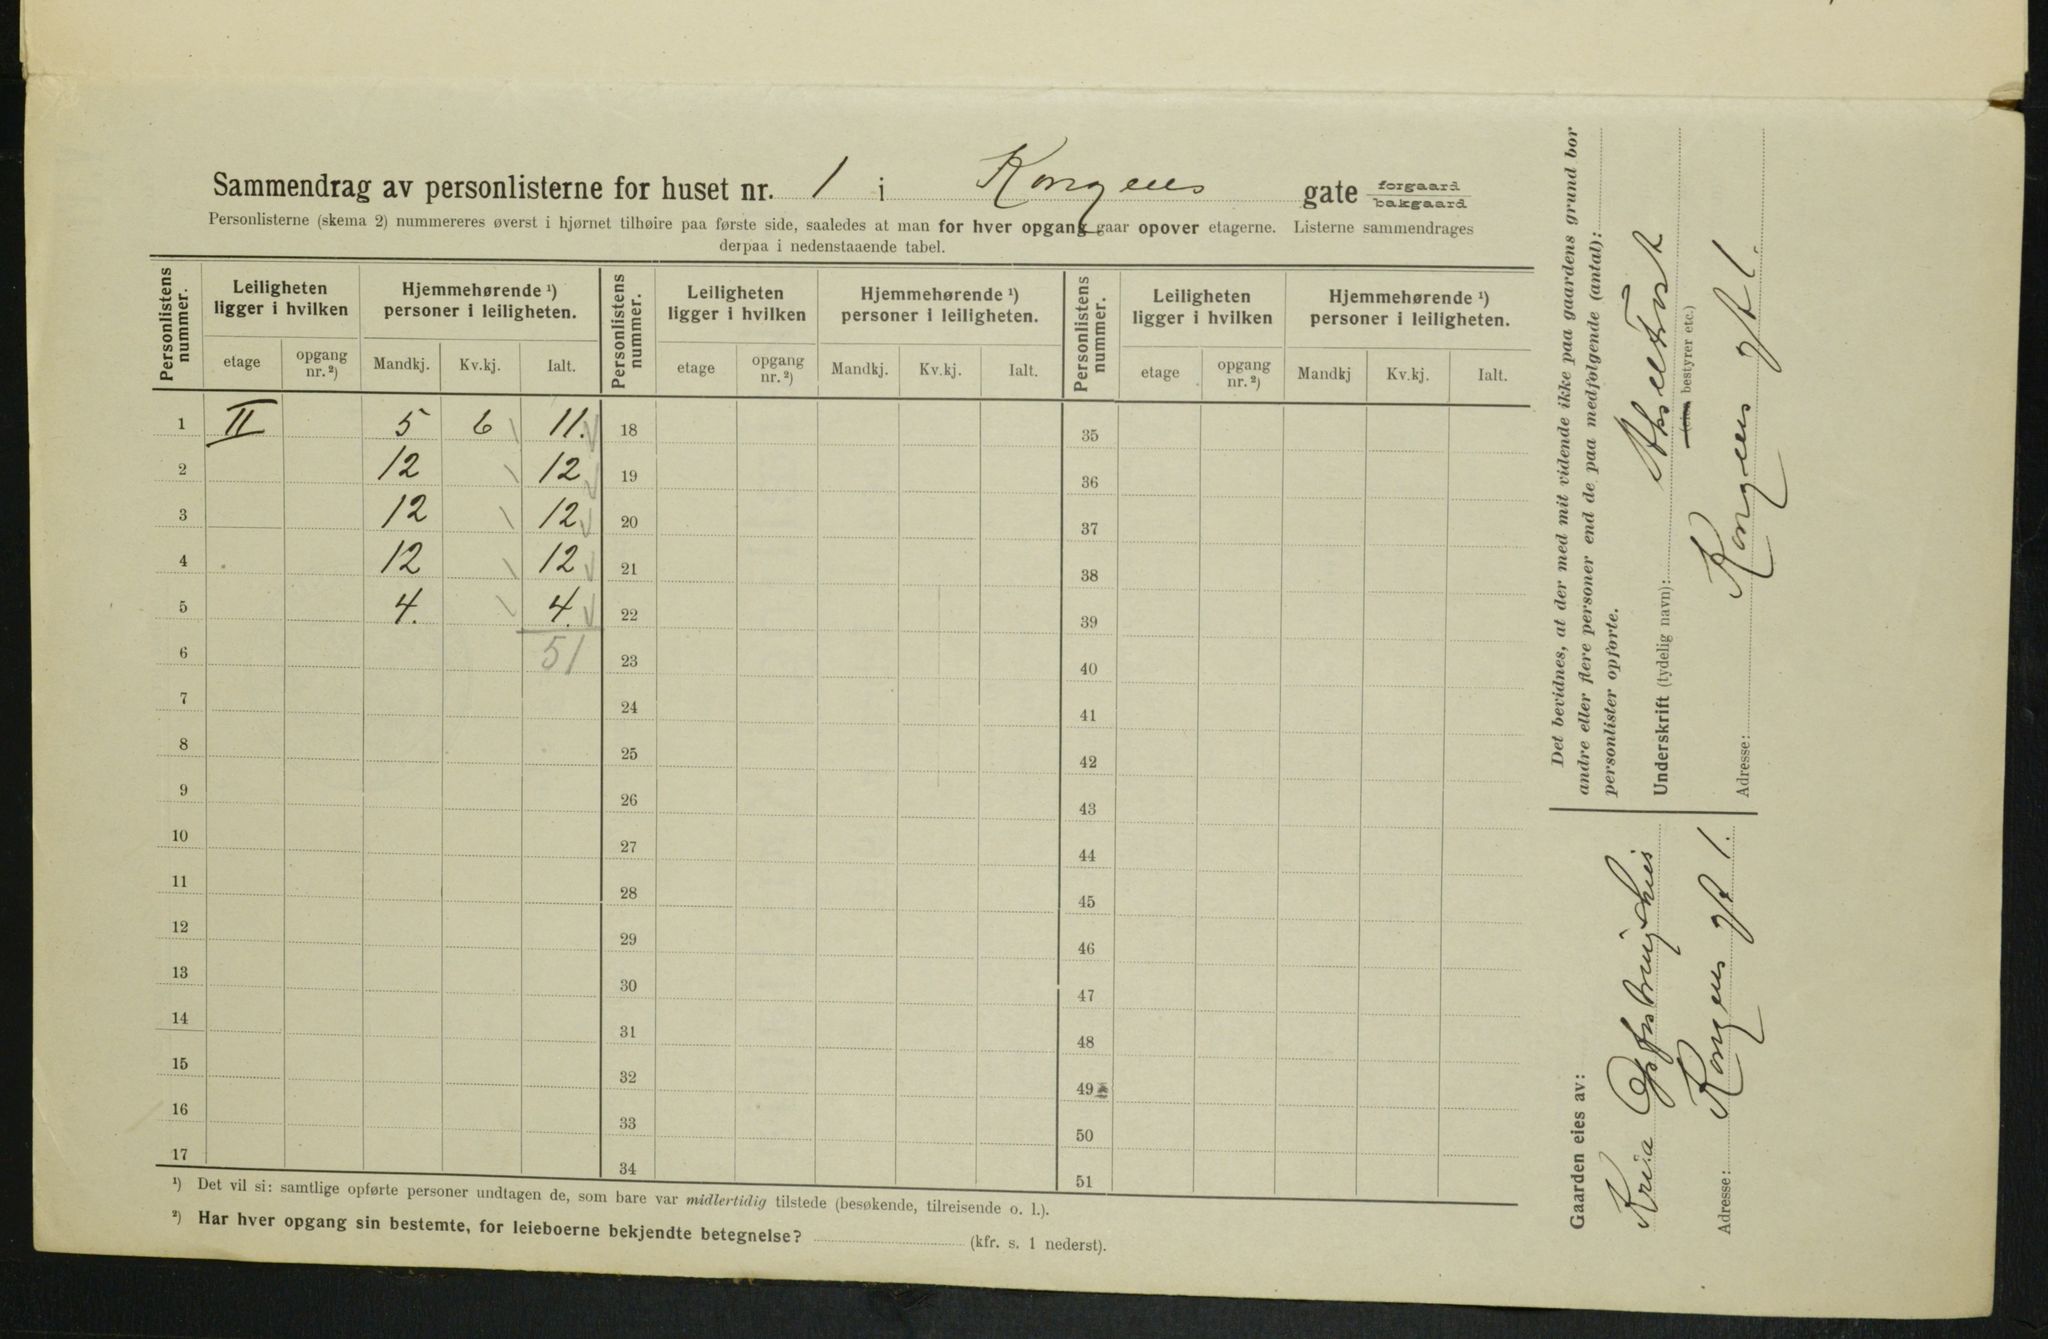 Sammendrag av personlisterne for huset nr. 1 i Kongens gate forgaard bakgaard
Personlisterne (skema 2) nummereres øverst i hjørnet tilhøire paa første side, saaledes at man for hver opgang gaar opover etagerne. Listerne sammendrages
derpaa i nedenstaaende tabel.
Personlistens nummer. Leiligheten ligger i hvilken Hjemmehørende ¹) personer i leiligheten. Personlistens nummer. Leiligheten ligger i hvilken Hjemmehørende ¹) personer i leiligheten. Personlistens nummer. Leiligheten ligger i hvilken Hjemmehørende ¹) personer i leiligheten.
etage opgang nr. ²) Mandkj. Kv.kj. Ialt. etage opgang nr. ²) Mandkj. Kv.kj. Ialt. etage opgang nr. ²) Mandkj Kv.kj. Ialt.
1 II 5 6 11. 18 35
2 12 12 19 36
3 12 12 20 37
4 12 12 21 38
5 4. 4. 22 39
6 51 23 40
7 24 41
8 25 42
9 26 43
10 27 44
11 28 45
12 29 46
13 30 47
14 31 48
15 32 49
16 33 50
17 34 51
¹) Det vil si: samtlige opførte personer undtagen de, som bare var midlertidig tilstede (besøkende, tilreisende o. l.).
²) Har hver opgang sin bestemte, for leieboerne bekjendte betegnelse? (kfr. s. 1 nederst).
Det bevidnes, at der med mit vidende ikke paa gaardens grund bor
andre eller flere personer end de paa medfølgende (antal):
personlister opførte.
Underskrift (tydelig navn):
bestyrer etc.)
Adresse: Kongens gt 1.
Gaarden eies av:
Kria Opfostringshus
Adresse: Kongens gt 1.